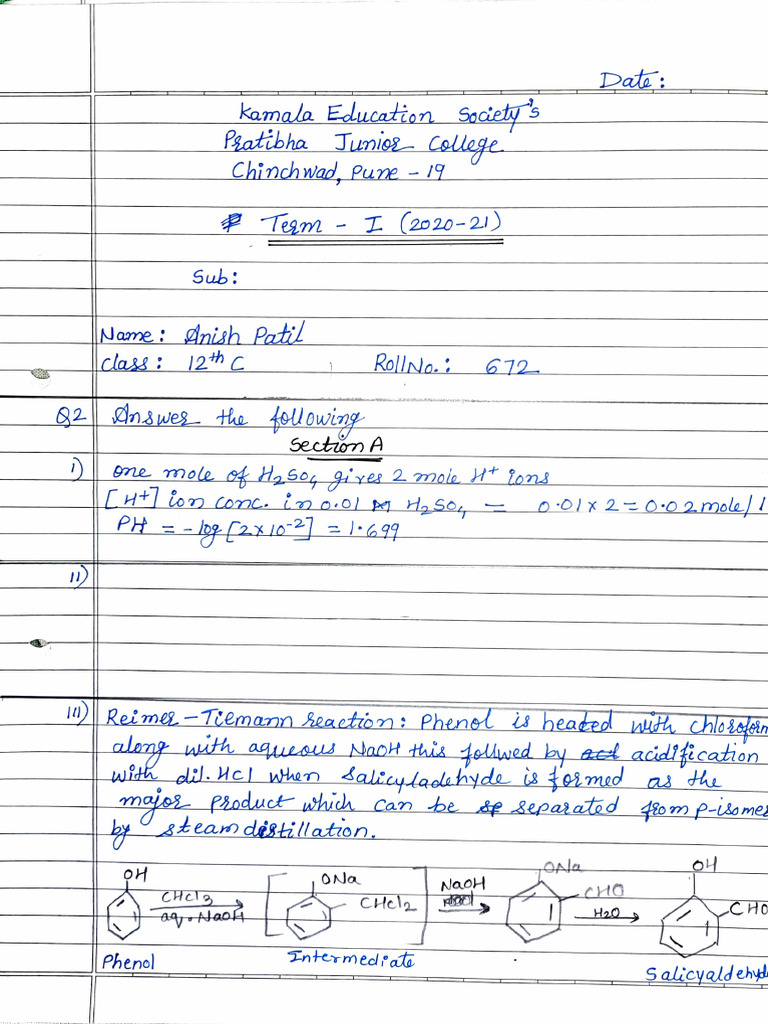 Date:
Kamala Education Society's
Pratibha Junior College
Chinchwad, Pune - 19
Term - I (2020-21)
Sub:
Name: Anish Patil
Class: 12th C RollNo.: 672
Q2 Answer the following
Section A
i) One mole of H2SO4 gives 2 mole H+ ions
[H+] ion conc. in 0.01 M H2SO4 = 0.01 x 2 = 0.02 mole/l
PH = -log [2x10-2] = 1.699
II)
III) Reimer-Tiemann reaction: Phenol is heated with chloroform
along with aqueous NaOH this follwed by acidification
with dil. HCl when Salicyladehyde is formed as the
major product which can be separated from p-isomer
by steam distillation.
OH ONa ONa OH
CHCl3 CHCl2 NaOH CHO CHO
aq. NaOH H2O
Phenol Intermediate Salicyaldehyd